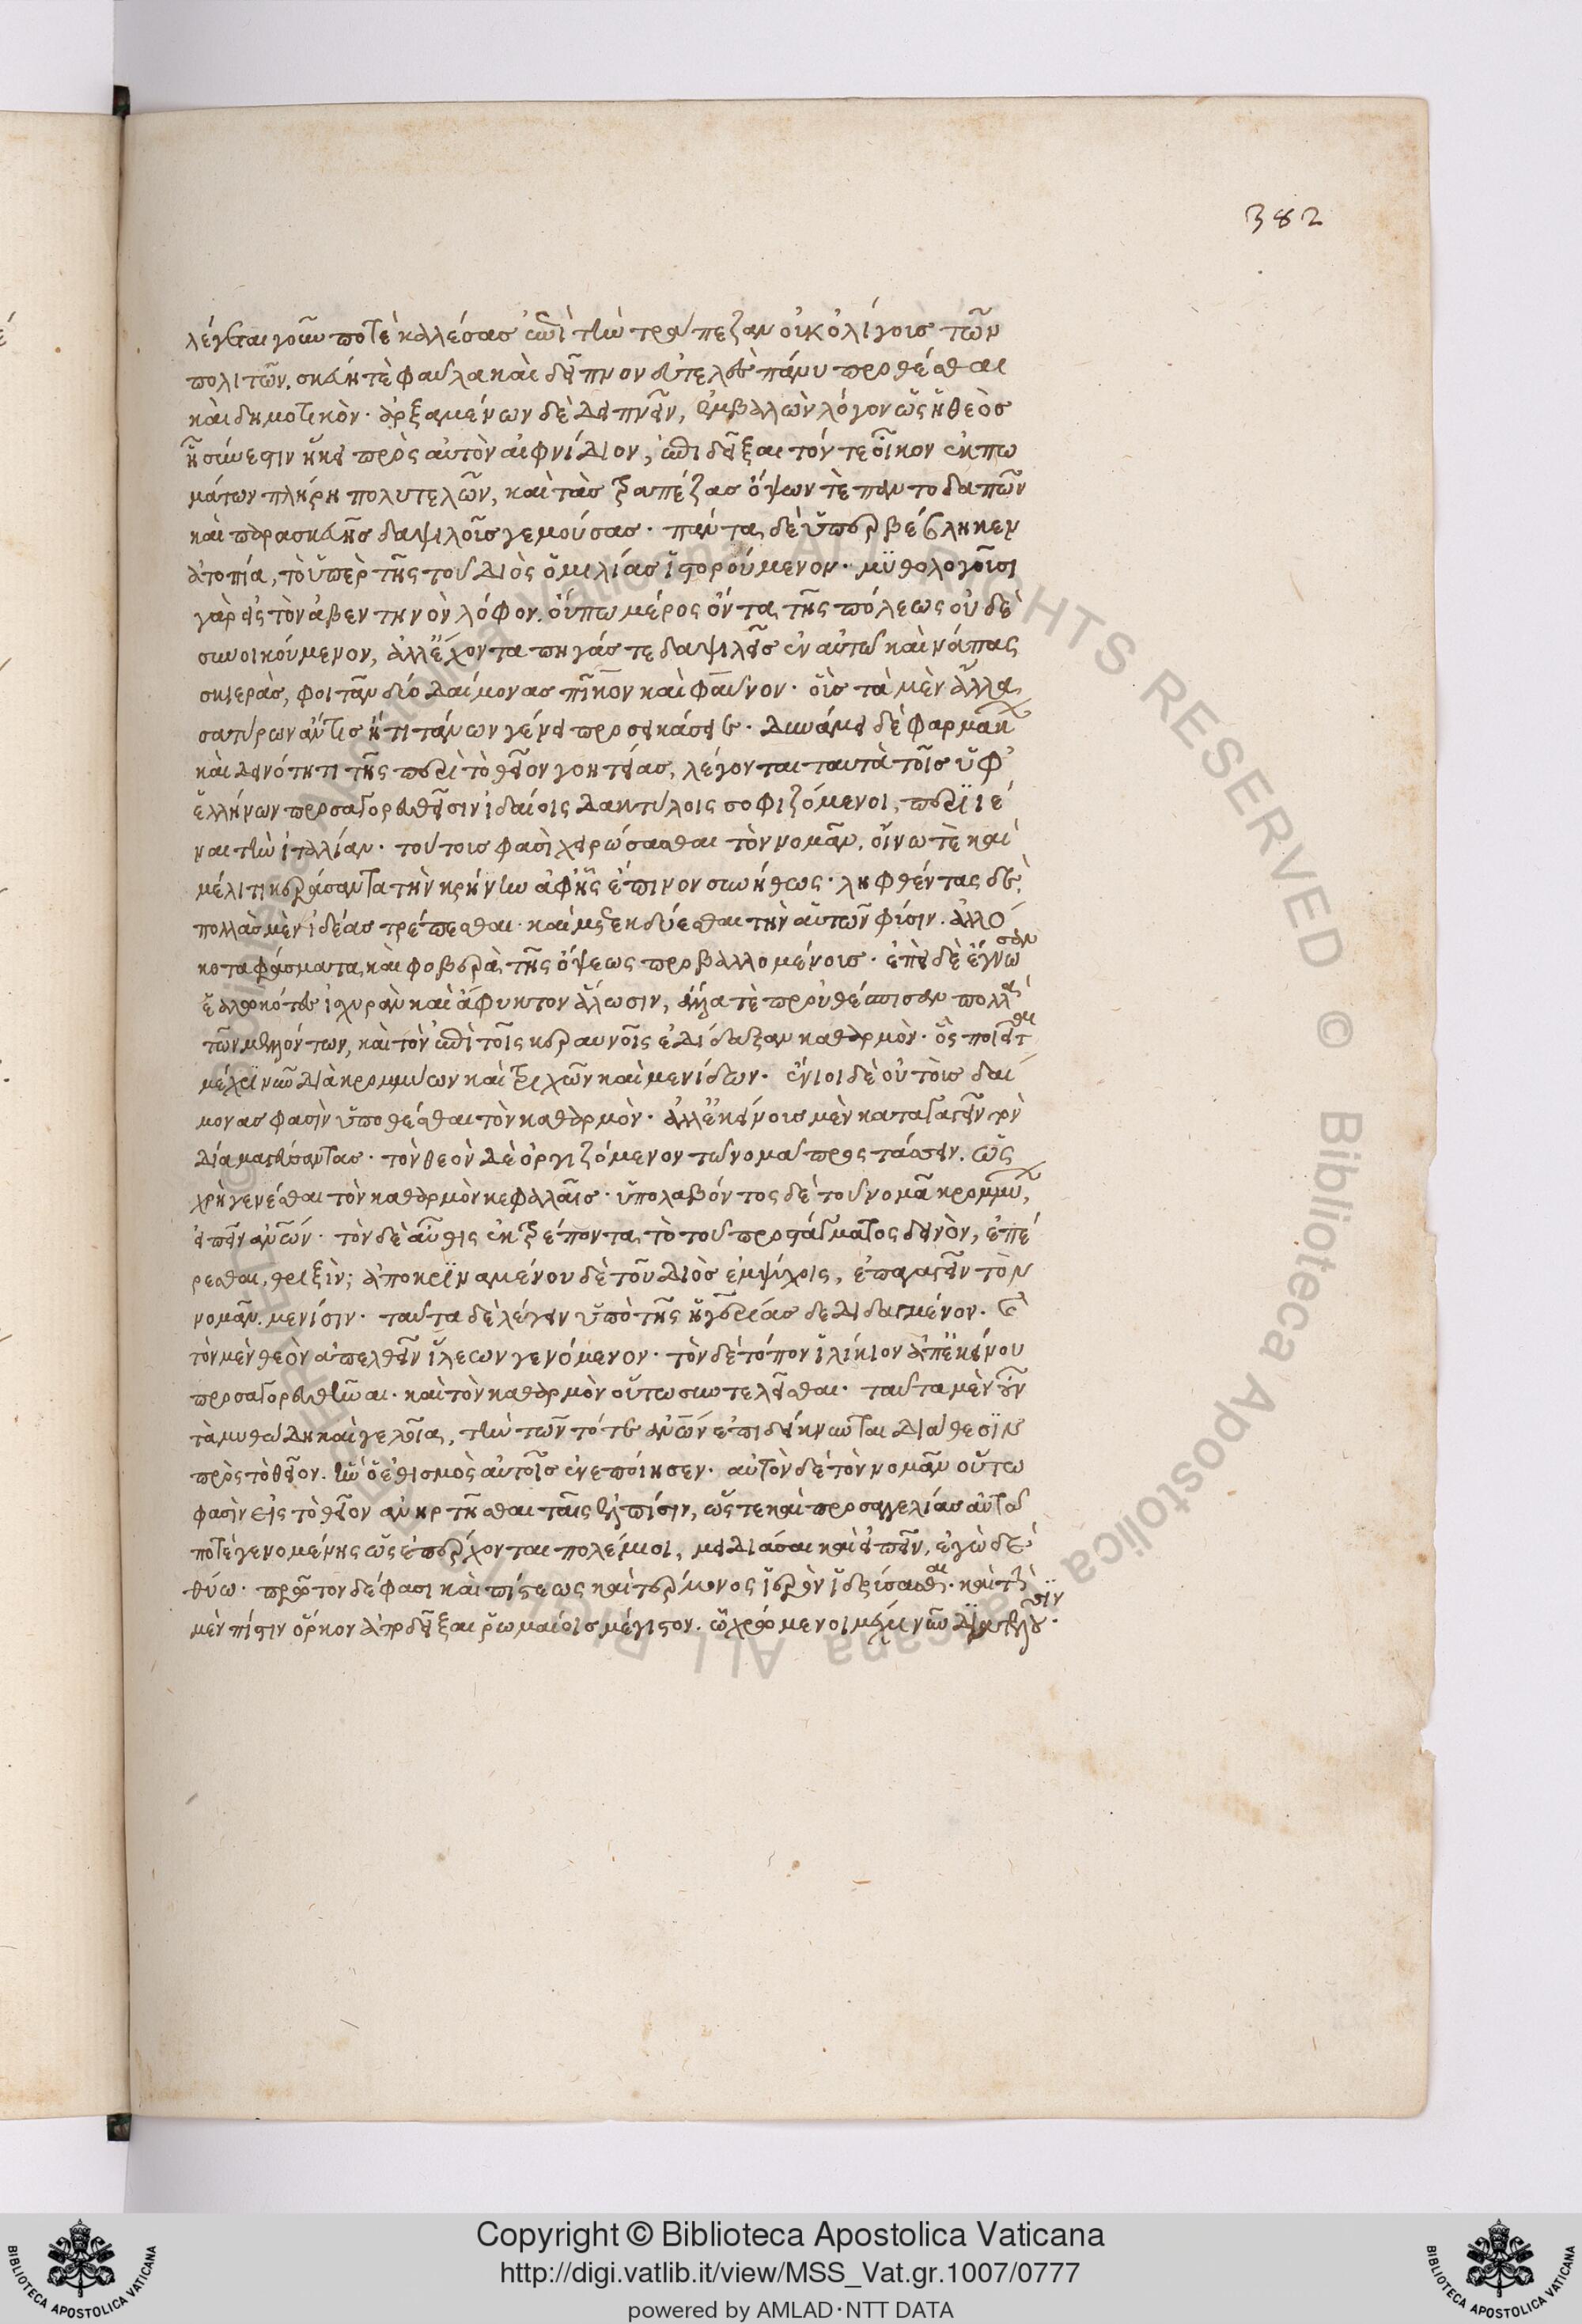 382
λέγεται γοῦν ποτὲ καλέσας ἐπὶ τὴν τράπεζαν οὐκ ὀλίγους τῶν
πολιτῶν, σκεύη τὲ φαῦλα καὶ δεῖπνον εὐτελὲς πάνυ προθέσθαι
καὶ δημοτικὸν· ἀρξαμένων δὲ δειπνεῖν, ἐμβαλὼν λόγον ὡς ἡ θεὸς
ᾗ σύνεστιν ἥκει πρὸς αὐτὸν αἰφνίδιον, ἐπιδεῖξαι τόν τε οἶκον ἐκπω
μάτων πλήρη πολυτελῶν, καὶ τὰς τραπέζας ὄψων τὲ παντοδαπῶν
καὶ παρασκευῆς δαψιλοῦς γεμούσας· πάντα δὲ ὑπερβέβληκεν
ἀτοπία, τὸ ὑπὲρ τῆς τοῦ Διὸς ὁμιλίας ἱστορούμενον· μυθολογοῦσι
γὰρ εἰς τὸν ἀβεντηνὸν λόφον. οὔπω μέρος ὄντα τῆς πόλεως οὐδὲ
συνοικούμενον, ἀλλ' ἔχοντα πηγάς τε δαψιλεῖς ἐν αὐτῶ καὶ νάπας
σκιερὰς, φοιτᾶν δύο δαίμονας πῖκον καὶ φαῦνον· οὓς τὰ μὲν ἄλλα
σατύρων ἄν τις ἢ τιτάνων γένει προσεικάσειε· δυνάμει δὲ φαρμάκων
καὶ δεινότητι τῆς περὶ τὸ θεῖον γοητείας, λέγονται ταυτὰ τοῖς ὑφ'
ἑλλήνων προσαγορευθεῖσιν ἰδαίοις δακτύλοις σοφιζόμενοι, περιϊέ
ναι τὴν ἰταλίαν· τούτους φασὶ χειρώσασθαι τὸν νομᾶν, οἴνω τὲ καὶ
μέλιτι κεράσαντα τὴν κρήνην ἀφ' ἧς ἔπινον συνήθως· ληφθέντας δὲ,
πολλὰς μὲν ἰδέας τρέπεσθαι· καὶ μετεκδύεσθαι τὴν αὑτῶν φύσιν. ἀλλό
κοτα φάσματα καὶ φοβερὰ τῆς ὄψεως προβαλλομένους· ἐπεὶ δὲ ἔγνωσαν
ἑαλωκότες ἰσχυρὰν καὶ ἄφυκτον ἅλωσιν, ἄλλα τὲ προθεσπίσαι πολλὰ
τῶν μελλόντων, καὶ τὸν ἐπὶ τοῖς κεραυνοῖς ἐδίδαξαν καθαρμὸν· ὃς ποιεῖται
μέχρι νῦν διὰ κρομμύων καὶ τριχῶν καὶ μενίδων· ἔνιοι δὲ οὐ τοὺς δαί
μονας φασὶν ὑποθέσθαι τὸν καθαρμὸν· ἀλλ' ἐκείνους μὲν καταγαγεῖν τὸν
δία μαγεύσαντας· τὸν θεὸν δὲ ὀργιζόμενον τῶ νομᾶ προστάσσειν, ὡς
χρὴ γενέσθαι τὸν καθαρμὸν κεφαλαῖς· ὑπολαβόντος δὲ τοῦ νομᾶ κρομμύων,
εἰπεῖν ἀνθρώπων· τὸν δὲ αὖθις ἐκτρέποντα τὸ τοῦ προστάγματος δεινὸν, ἐπέ
ρεσθαι, θριξὶν; ἀποκριναμένου δὲ τοῦ Διὸς ἐμψύχοις, ἐπαγαγεῖν τὸν
νομᾶν. μενίσιν· ταῦτα δὲ λέγειν ὑπὸ τῆς ἠγερίας δεδιδαγμένον· καὶ
τὸν μὲν θεὸν ἀπελθεῖν ἵλεων γενόμενον· τὸν δὲ τόπον ἱλίκιον ἀπ' ἐκείνου
προσαγορευθῆναι· καὶ τὸν καθαρμὸν οὕτω συντελεῖσθαι· ταῦτα μὲν οὖν
τὰ μυθώδη καὶ γελοῖα, τὴν τῶν τότε ἀνθρώπων ἐπιδείκνυται διάθεσιν
πρὸς τὸ θεῖον. ἣν ὁ ἐθισμὸς αὐτοῖς ἐνεποίησεν· αὐτὸν δὲ τὸν νομᾶν οὕτω
φασὶν εἰς τὸ θεῖον ἀνηρτῆσθαι ταῖς ἐλπίσιν, ὥστε καὶ προσαγγελίας αὐτῶ
ποτὲ γενομένης ὡς ἐπέρχονται πολέμιοι, μειδιάσαι καὶ εἰπεῖν, ἐγὼ δὲ
θύω· πρῶτον δέ φασι καὶ πίστεως καὶ τέρμονος ἱερὸν ἱδρύσασθαι· καὶ τὴν
μὲν πίστιν ὅρκον ἀποδεῖξαι ῥωμαίοις μέγιστον. ᾧ χρώμενοι μέχρι νῦν διατελοῦσιν·